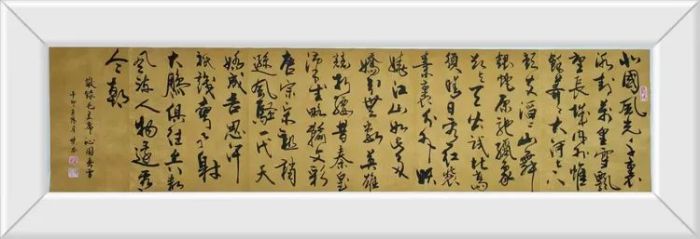 北國風光千里
冰封萬里雪飄
望長城內外惟
餘莽莽大河上下
頓失滔滔山舞
銀蛇原馳蠟象
欲與天公試比高
須晴日看紅裝
素裹分外妖
嬈江山如此多
嬌引無數英雄
競折腰昔秦皇
漢武略輸文彩
唐宗宋祖稍
遜風騷一代天
驕成吉思汗
祇識彎弓射
大雕俱往矣數
風流人物還看
今朝
敬錄毛主席沁園春雪
辛卯年